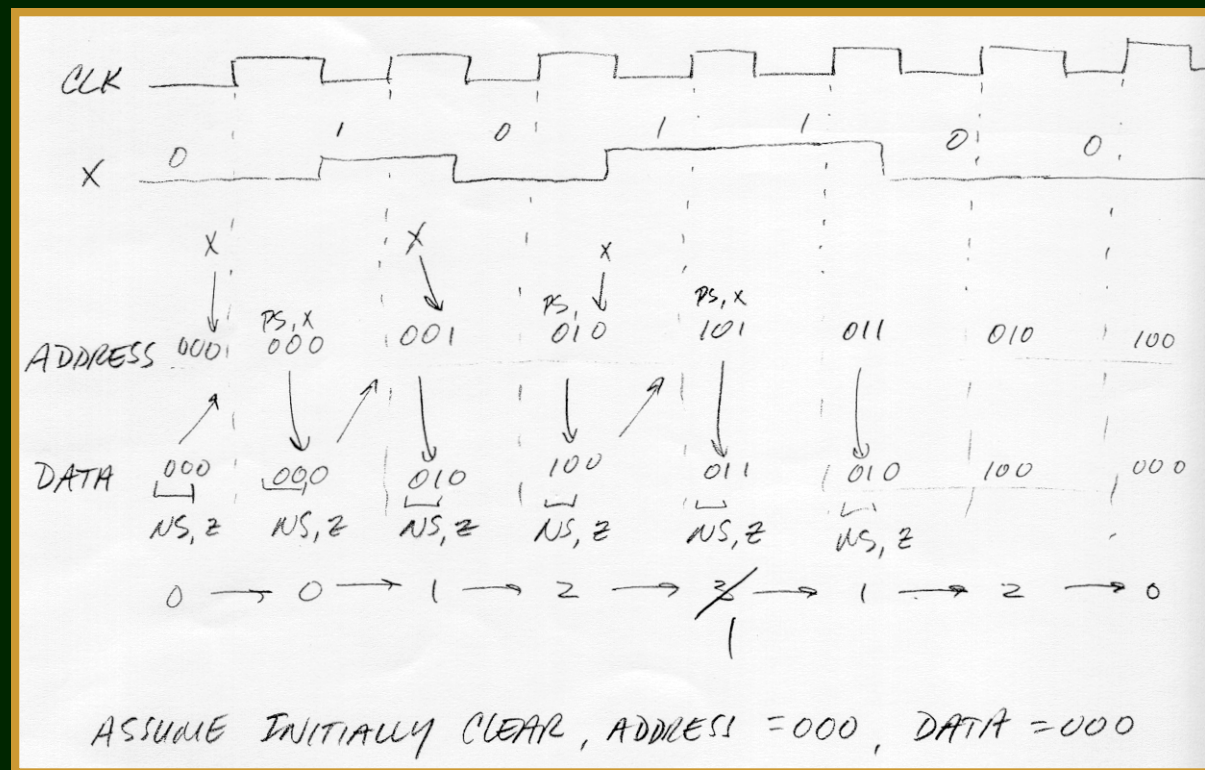 CLK
0 1 0 1 1 0 0
X
X X X
PS, X PS, PS, X
ADDRESS 000 000 001 010 101 011 010 100
DATA 000 000 010 100 011 010 100 000
NS, Z NS, Z NS, Z NS, Z NS, Z NS, Z
0 → 0 → 1 → 2 → → 1 → 2 → 0
1
ASSUME INITIALLY CLEAR, ADDRESS = 000, DATA = 000